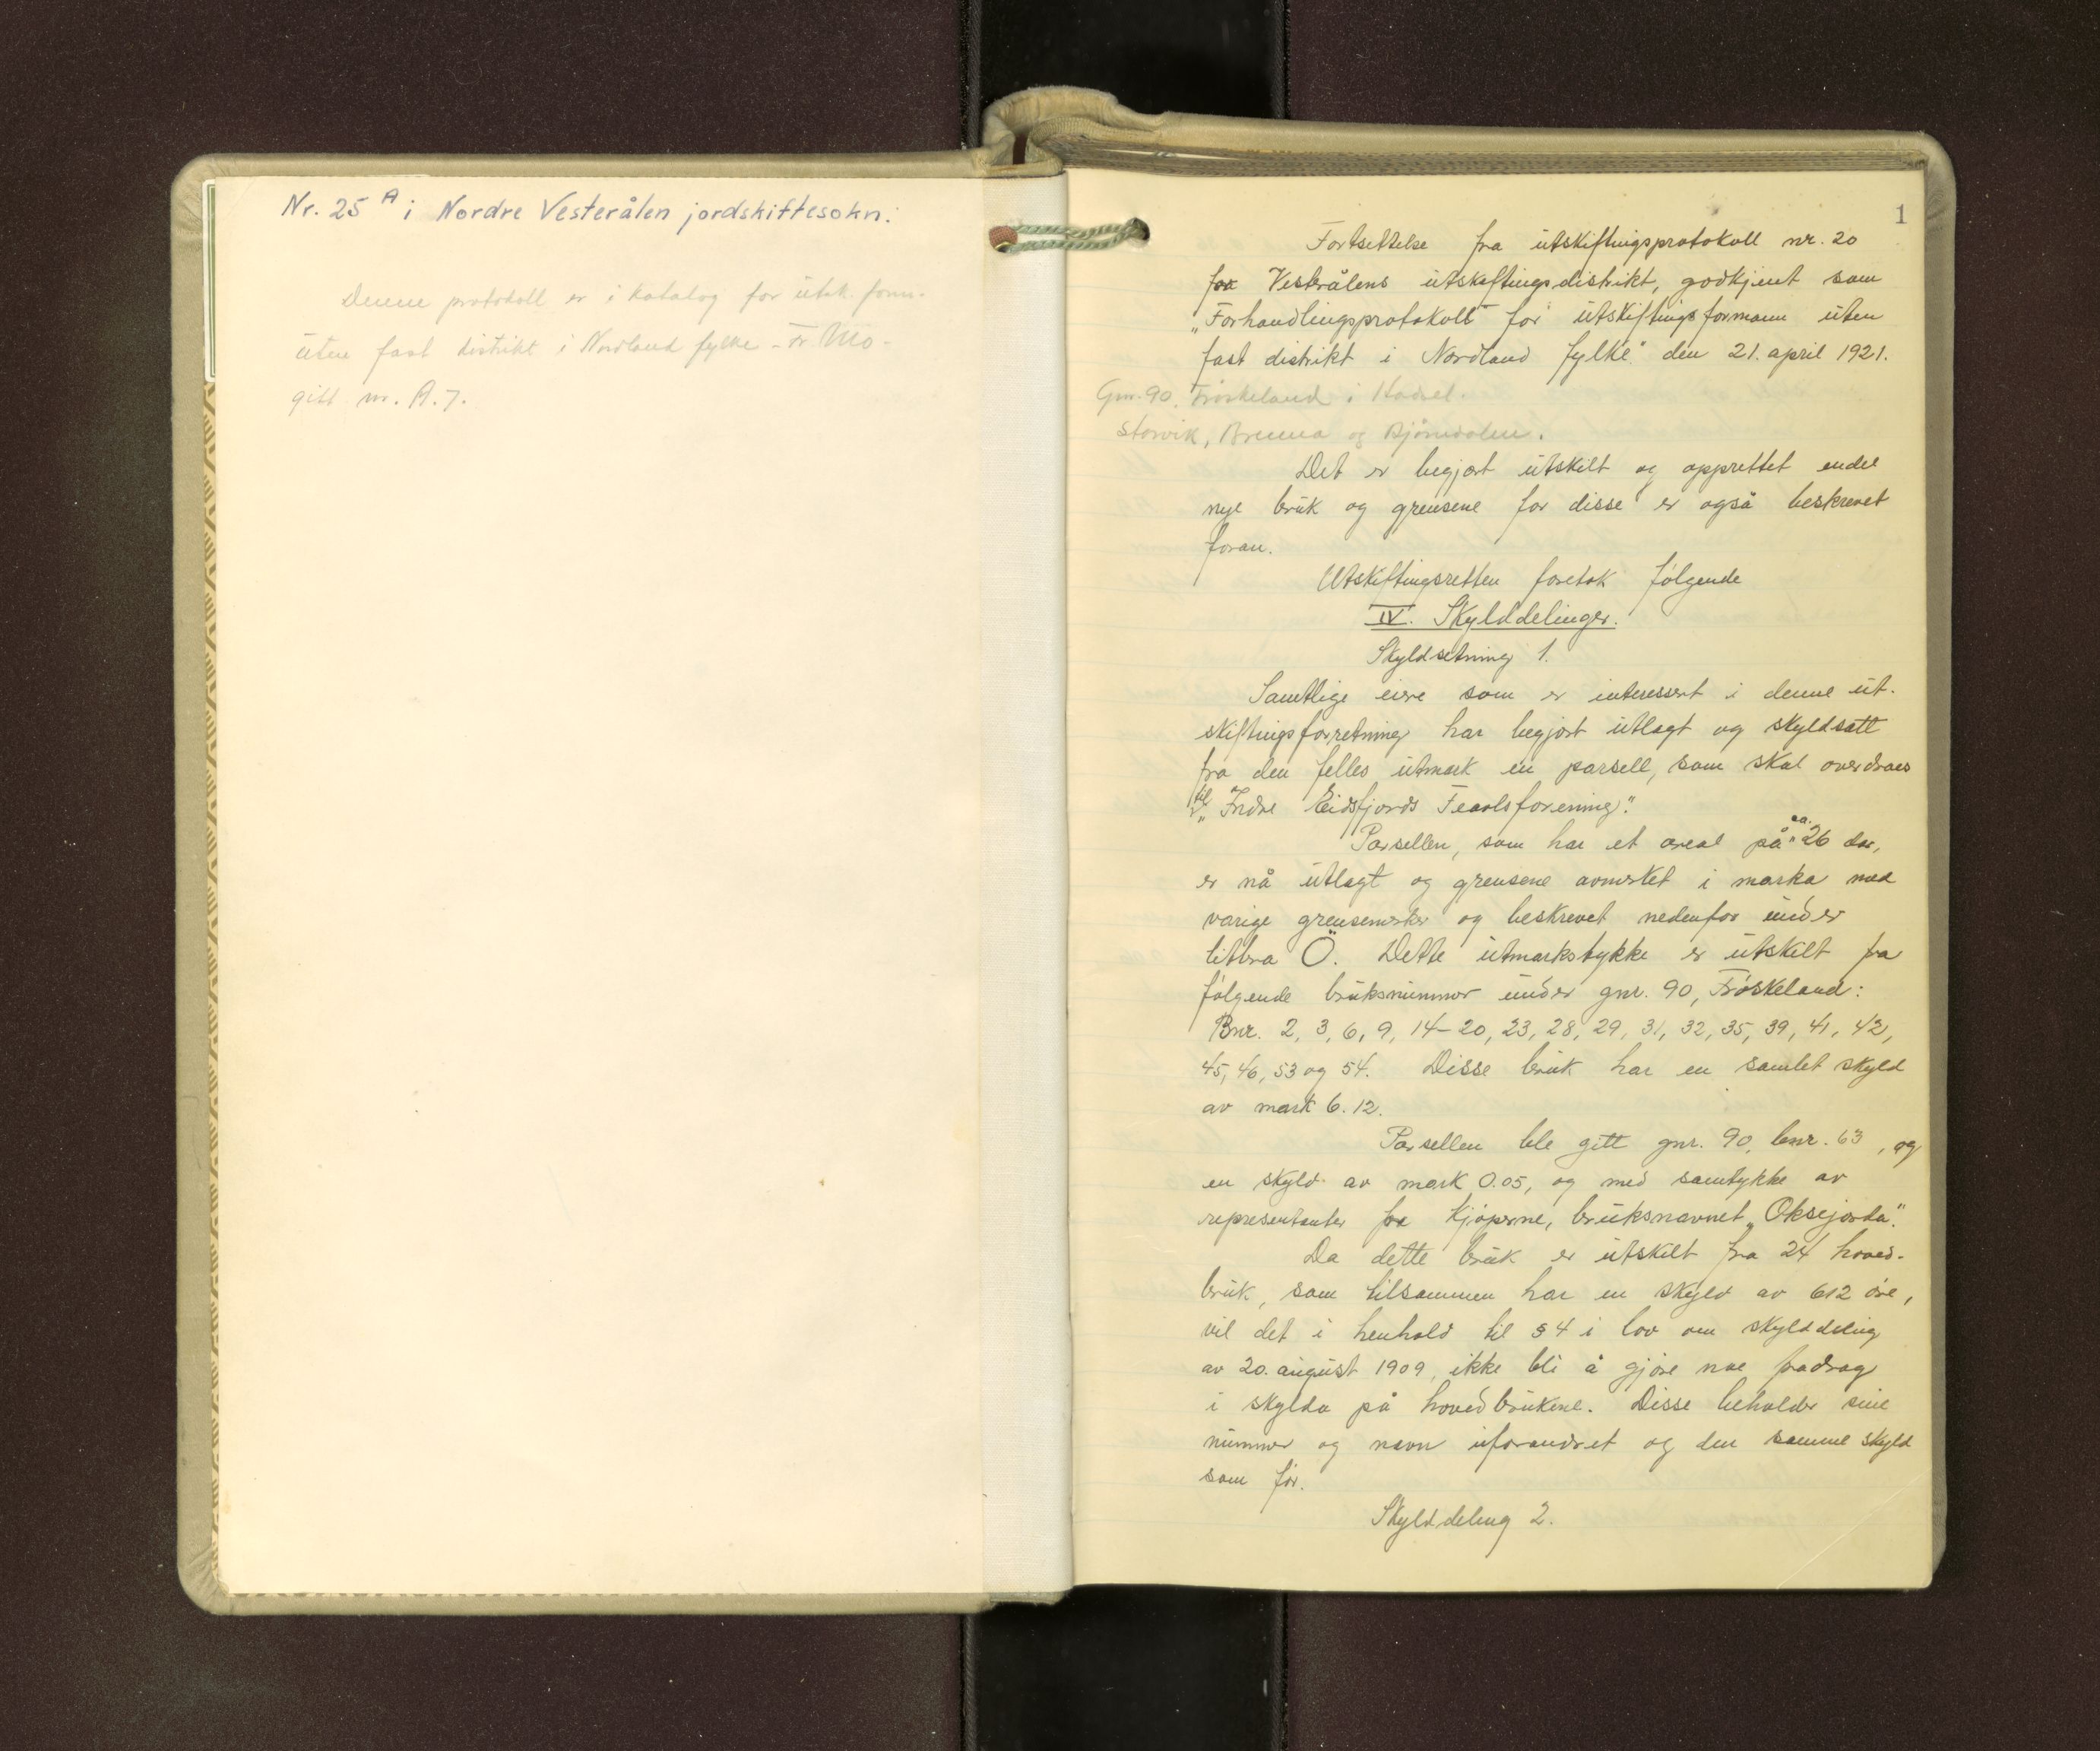 Nr. 25 A i Nordre Vesterålen jordskiftesokn:
Denne protokoll er i katalog for utsk. form.
uten fast distrikt i Nordland fylke - Fr. Mo -
gitt nr. A. 7.
1
Fortsettelse fra utskiftingsprotokoll nr. 20
for Vesterålens utskiftingsdistrikt, godkjent som
„Forhandlingsprotokoll for utskiftingsformann uten
fast distrikt i Nordland fylke" den 21. april 1921.
Gnr. 90. Frøskeland i Hadsel.
Storvik, Brenna og Bjørndalen.
Det er begjært utskilt og opprettet endel
nye bruk og grensene for disse er også beskrevet
foran.
Utskiftingsretten foretok følgende
IV. Skylddelinger.
Skyldsetning 1.
Samtlige eiere som er interessert i denne ut-
skiftingsforretning har begjært utlagt og skyldsatt
fra den felles utmark en parsell, som skal overdraes
til „Indre Eidsfjords Feavlsforening".
Parsellen, som har et areal på ca. 26 dar,
er nå utlagt og grensene avmerket i marka med
varige grensemerker og beskrevet nedenfor under
litbra Ö. Dette utmarkstykke er utskilt fra
følgende bruksnummer under gnr. 90, Frøskeland:
Bnr. 2, 3, 6, 9, 14-20, 23, 28, 29, 31, 32, 35, 39, 41, 42,
45, 46, 53 og 54. Disse bruk har en samlet skyld
av mark 6.12.
Parsellen ble gitt gnr. 90, bnr. 63, og
en skyld av mark 0.05, og med samtykke av
representanter for kjøperne, bruksnavnet „Oksejorda".
Da dette bruk er utskilt fra 24 hoved-
bruk, som tilsammen har en skyld av 612 øre,
vil det i henhold til § 4 i lov om skylddeling
av 20. august 1909, ikke bli å gjøre noe fradrag
i skylda på hovedbrukene. Disse beholder sine
nummer og navn uforandret og den samme skyld
som før.
Skylddeling 2.